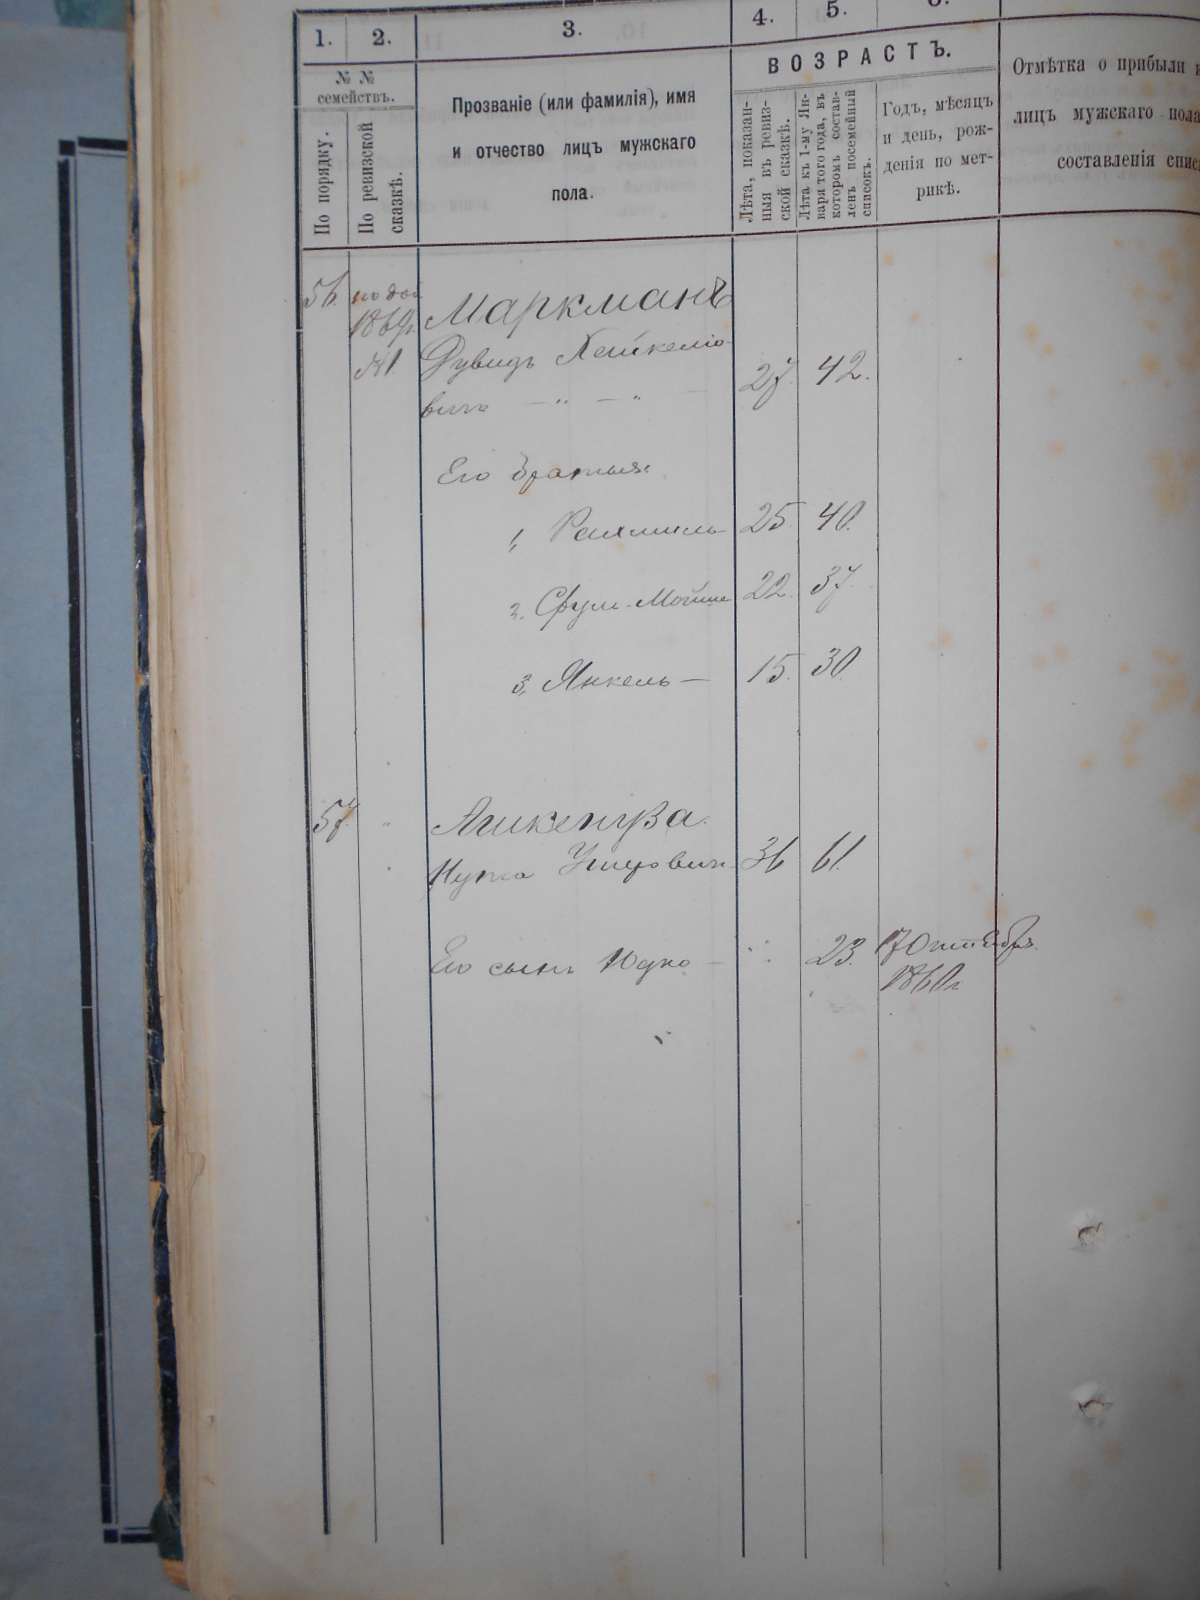 1. 2. 3. 4. 5. 6.
№ № семействъ.
По порядку.
По ревизской сказкѣ.
Прозваніе (или фамилія), имя
и отчество лицъ мужскаго
пола.
ВОЗРАСТЪ.
Лѣта, показан-
ныя въ ревиз-
ской сказкѣ.
Лѣта къ 1-му Ян-
варя того года, въ
которомъ состав-
ленъ посемейный
списокъ.
Годъ, мѣсяцъ
и день, рож-
денія по мет-
рикѣ.
Отмѣтка о прибыли и
лицъ мужскаго пола
составленія спис
56 по доп Маркманъ
1869г.
№1 Дувидъ Хайкеліо-
вичъ — " — " — 27. 42.
Его братья:
1, Рахмиль 25. 40.
2, Сруль-Мойше 22. 37.
3, Янкель — 15. 30.
57 "
Нута 36 61.
Его сынъ Юдко — " 23. 17 Октября
1860г.